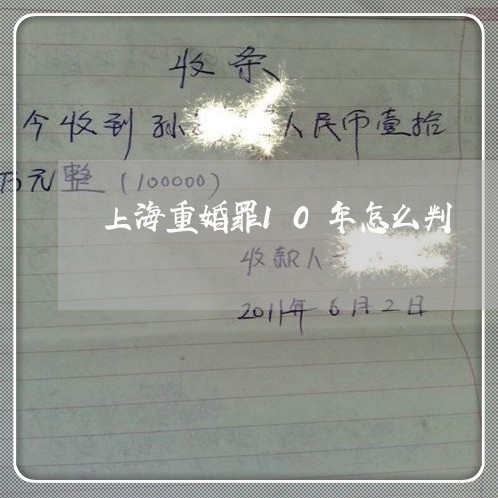 收条
今收到孙 人民币壹拾
万元整(100000)
上海重婚罪10年怎么判
收款人
2011年6月2日